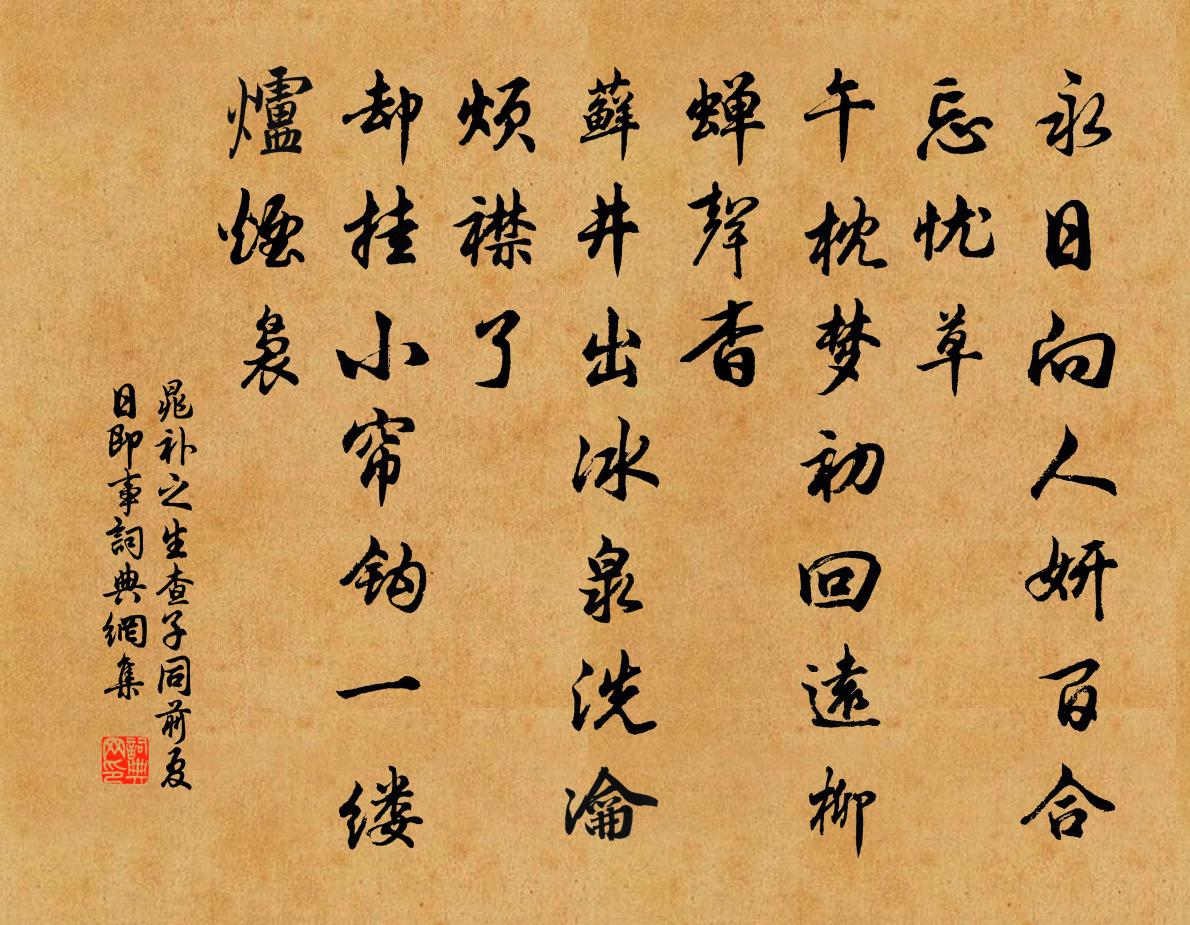 永日向人妍百合
忘忧草
午枕梦初回遠柳
蝉聲杳
蘚井出冰泉洗瀹
烦襟了
却挂小帘鈎一缕
爐煙裊
晁补之生查子同前夏
日即事詞典網集
詞典
网印